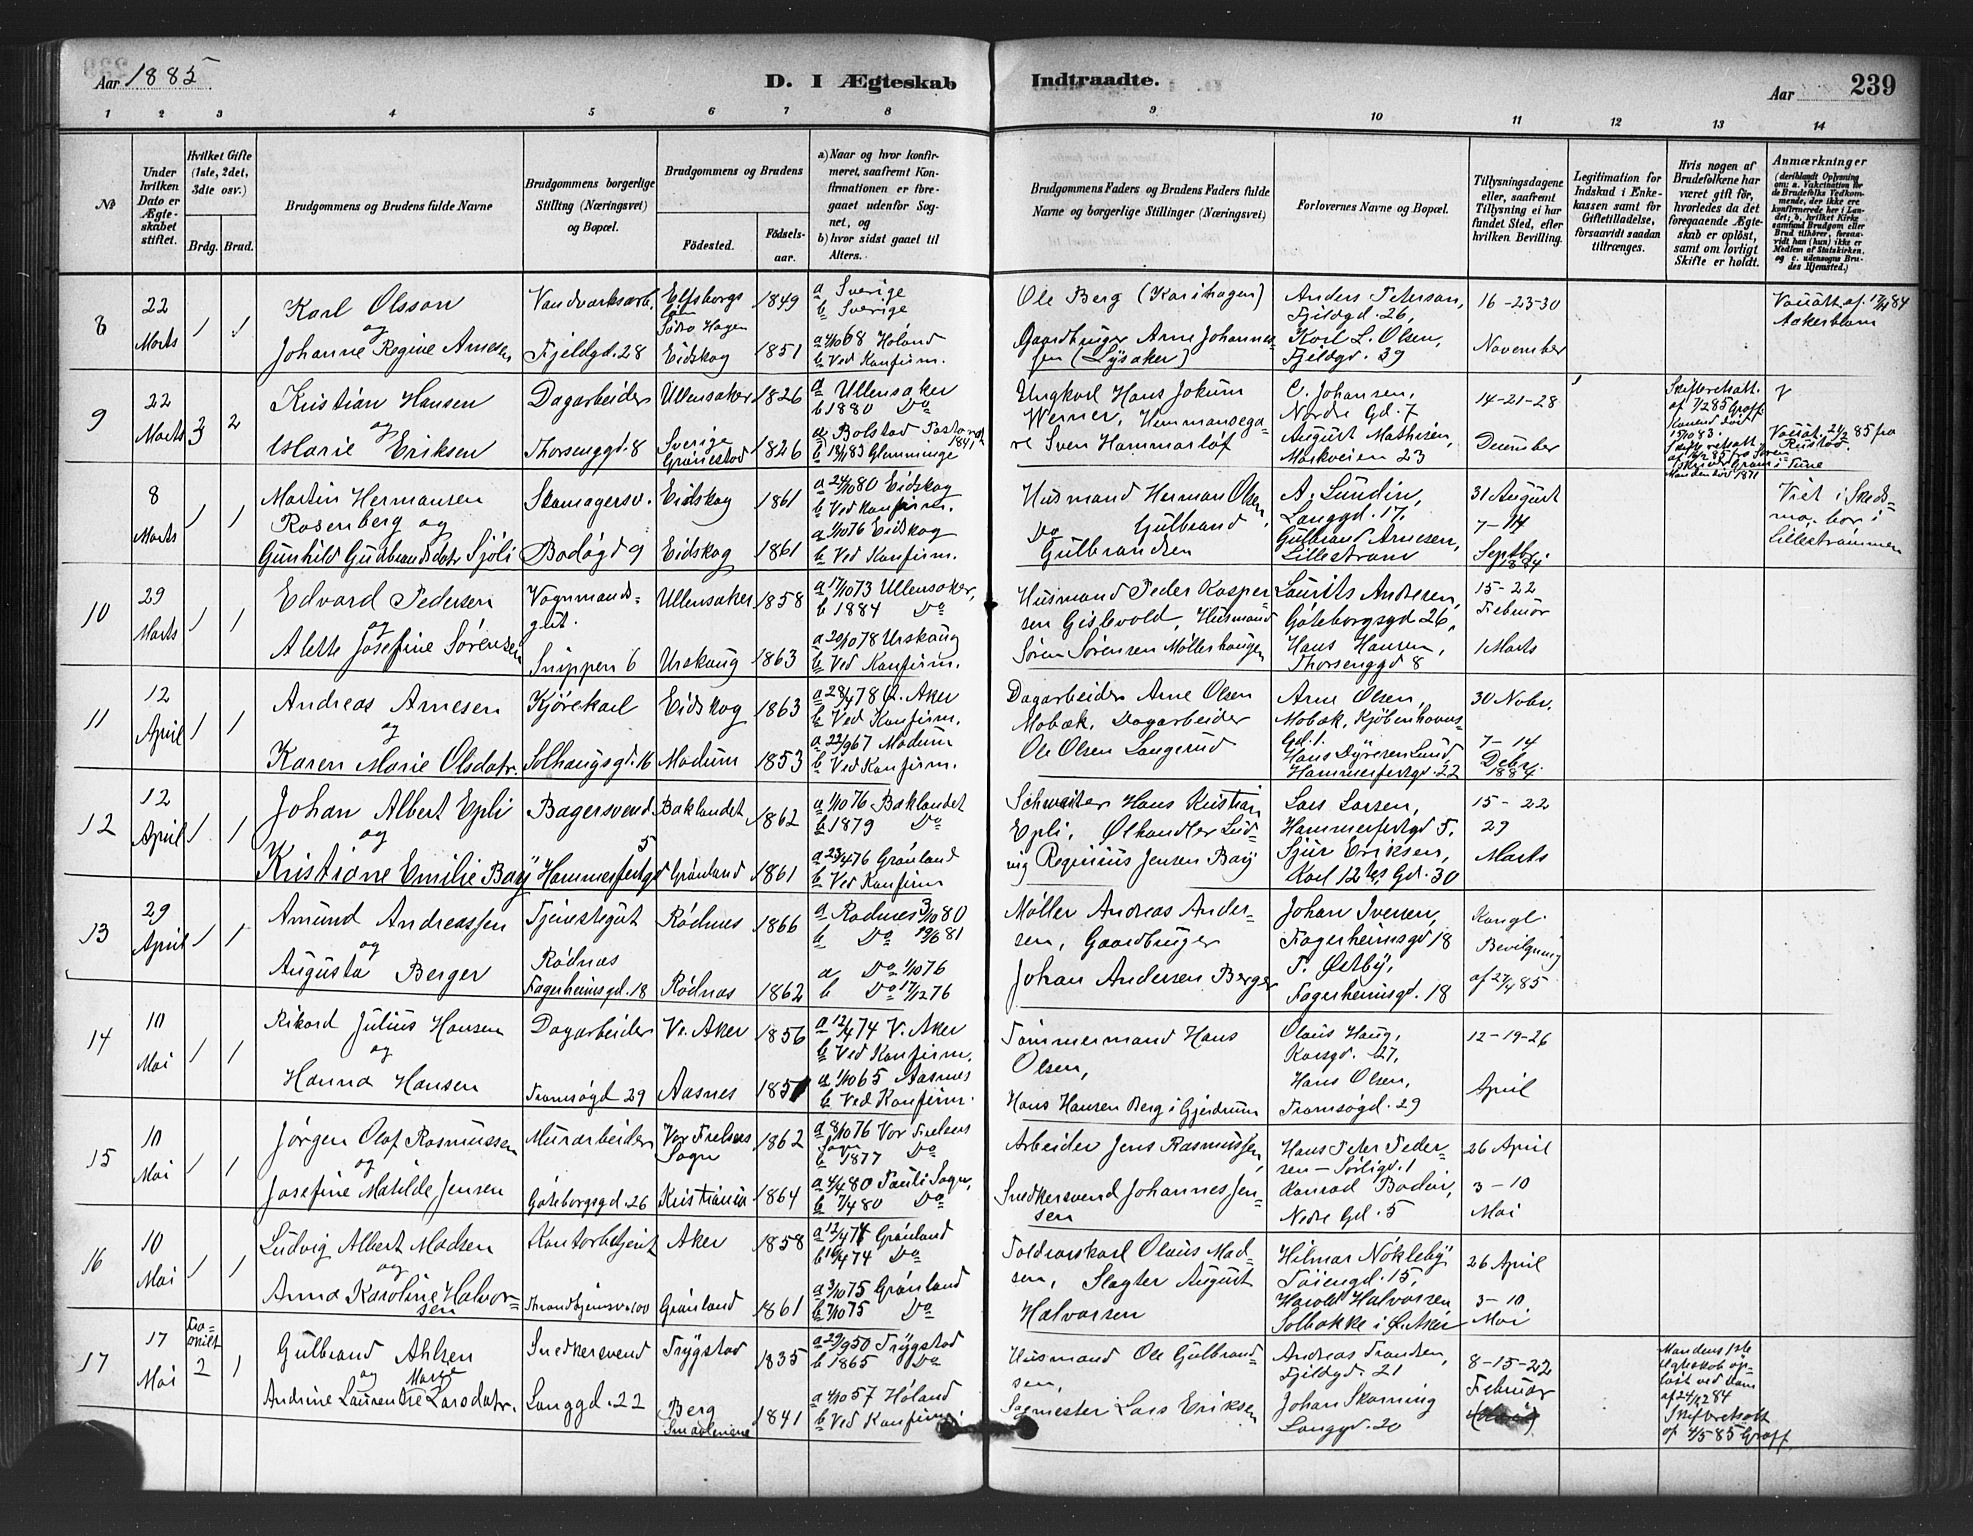 Aar 1885
D. I Ægteskab Indtraadte.
Aar
239
1 2 3 4 5 6 7 8 9 10 11 12 13 14
№
Under hvilken Dato er Ægteskabet stiftet.
Hvilket Gifte (1ste, 2det, 3die osv.)
Brdg. Brud.
Brudgommens og Brudens fulde Navne
Brudgommens borgerlige Stilling (Næringsvei) og Bopæl.
Brudgommens og Brudens
Fødested.
Fødselsaar.
a) Naar og hvor konfirmeret, saafremt Konfirmationen er foregaaet udenfor Sognet, og
b) hvor sidst gaaet til Alters.
Brudgommens Faders og Brudens Faders fulde Navne og borgerlige Stillinger (Næringsvei)
Forlovernes Navne og Bopæl.
Tillysningsdagene eller, saafremt Tillysning ei har fundet Sted, efter hvilken Bevilling.
Legitimation for Indskud i Enkekassen samt for Giftetilladelse, forsaavidt saadan tiltrænges.
Hvis nogen af Brudefolkene har været gift før, hvorledes da det foregaaende Ægteskab er opløst, samt om lovligt Skifte er holdt.
Anmærkninger (deriblandt Oplysning om: a. Vakcination for de Brudefolks Vedkommende, der ikke ere konfirmerede her i Landet; b. hvilket Kirkesamfund Brudgom eller Brud tilhører, forsaavidt han (hun) ikke er Medlem af Statskirken, og c. udensogns Brudes Hjemsted.)
8 22 Marts 1 1
Karl Olsson
og
Johanne Regine Arnesen
Vandværksarb.
Fjeldgd. 28
Elfsborgs län Södra Hagen 1849
Eidskog 1851
a Sverige
b Sverige
a 4/10 68 Höland
b Ved Konfirm.
Ole Berg (Karihagen)
Gaardbruger Arne Johannessen (Lysaker)
Anders Peterson,
Fjeldgd. 26,
Karl L. Olsen,
Fjeldgd. 39
16-23-30
November
Ackerblom
9 22 Marts 3 2
Kristian Hansen
og
Marie Eriksen
Dagarbeider
Thorsenggd. 8
Ullensaker 1826
Sverige 1826
a Ullensaker
b 1880 Do
a Bolstad 1841
b 18/1 83 Glemminge
Ungkarl Hans Jokum
Werner, Hemmansegare Sven Hammarlöf
C. Johansen,
Nordre Gd. 7
August Mathisen,
Markveien 23
14-21-28
December
8 Marts 1 1
Martin Hermansen
Rosenberg og
Gunhild Gudbrandsdatr Sjöli
Stensagersv.
Bodøgd 9
Eidskog 1861
Eidskog 1861
a 24/10 80 Eidskog
b Ved Konfirm.
a 1/10 76 Eidskog
b Ved Konfirm.
Husmand Herman Olsen,
Do Gulbrand
Gulbrandsen
A. Lundin,
Langgd. 17.
Gulbrand Arnesen,
Lillestrøm
31 August
7-14
Septbr.
1884
Viet i Skedsmo, bor i
Lillestrømmen
10 29 Marts 1 1
Edvard Pedersen
og
Alette Josefine Sørensen
Vognmandsgut.
Snippen 6
Ullensaker 1858
Urskoug 1863
a 17/10 73 Ullensaker,
b 1884 Do
a 20/10 78 Urskoug
b Ved Konfirm.
Husmand Peder Kaspersen Gislevold, Husmand
Søren Sørensen Møllerhaugen
Laurits Andresen,
Göteborgsgd 26,
Hans Hansen,
Thorsenggd 8
15-22
Februar
1 Marts
11 12 April 1 1
Andreas Arnesen
og
Karen Marie Olsdatr.
Kjörekarl
Solhaugsgd. 16
Eidskog 1863
Modum 1853
a 28/4 78 Ø. Aker
b Ved Konfirm.
a 22/9 67 Modum
b Ved Konfirm.
Dagarbeider Arne Olsen
Mobæk, Dagarbeider
Ole Olsen Langerud
Arne Olsen,
Mobæk, Kjöbenhavnsgd. 1.
Hans Lund,
Hammerfestgd. 22
30 Nobr.
7-14
Debr.
1884
12 12 April 1 1
Johan Albert Epli
og
Kristiane Emilie Bay
Bagersvend
Hammerfestgd 5
Baklandet 1862
Grønland 1861
a 1/10 76 Baklandet
b 1879 Do
a 23/4 76 Grønland
b Ved Konfirm
Schweitser Hans Kristian
Epli, Ølhandler Ludvig Reginius Jensen Bay
Lars Larsen,
Hammerfestgd 5,
Sjur Eriksen,
Karl 12tes Gd. 30
15-22
29
Marts
13 29 April 1 1
Amund Andreassen
og
Augusta Berger
Tjenestegut
Rödnæs
Fagerheimsgd. 18
Rødnæs 1866
Rødnæs 1862
a Rødnæs 3/10 80
b Do 19/6 81
a Do 1/10 76
b Do 17/12 76
Møller Andreas Andersen, Gaardbruger
Johan Andersen Berger
Johan Iversen,
Fagerheimsgd 18
P. Østby,
Fagerheimsgd. 18
Kongl.
Bevilgning
af 27/4 85
14 10 Mai 1 1
Rikard Julius Hansen
og
Hanna Hansen
Dagarbeider
Tromsøgd 29
V. Aker 1856
Aasnes
a 12/4 74 V. Aker
b Ved Konfirm.
a 1/10 65 Aasnes
b Ved Konfirm.
Tømmermand Hans
Olsen,
Hans Hansen Berg i Gjerdrum
Olaus Haug,
Korsgd. 27,
Hans Olsen,
Tromsøgd. 29
12-19-26
April
15 10 Mai 1 1
Jörgen Olaf Rasmussen
og
Josefine Matilde Jensen
Murarbeider
Göteborgsgd. 26
Vor Frelsers Sogn 1862
Kristiania 1864
a 8/10 76 Vor Frelsers
b 1877 Do
a 4/4 80 Pauli Sogn,
b 7/4 80 Do
Arbeider Jens Rasmussen,
Snedkersvend Johannes Jensen
Hans Peter Pedersen – Sørligd. 1
Konrad Bodin,
Nedre Gd. 5
26 April
3-10
Mai
16 10 Mai 1 1
Ludvig Albert Madsen
og
Anna Karoline Halvorsen
Kontorbetjent
Throndhjemsv. 100
Aker 1858
Grønland 1861
a 12/4 74 Grønland
b 16/4 74 Do
a 3/10 75 Grønland
b 7/10 75 Do
Toldrorskarl Olaus Madsen, Slagter August
Halvorsen
Hilmar Nökleby
Tøiengd. 15,
Harold Halvorsen
Solbakke i Ø. Aker
26 April
3-10
Mai
17 17 Mai Fraskilt 2 1
Gulbrand Ahlsen
og
Andrine Laurentse Marie Larsdatr.
Snedkersvend
Langgd. 22
Trygstad 1835
Berg Smaalenene 1841
a 29/9 50 Trygstad
b 1865 Do
a 4/10 57 Høland
b Ved Konfirm.
Husmand Ole Gulbrandsen,
Sagmester Lars Eriksen
Andreas Frandsen,
Fjeldgd. 21
Johan Skarning
Langgd. 20
8-15-22
Februar
Mandens 1ste
Egteskab opløst ved Dom
af 24/12 84
Skifteretsatt.
af 4/5 85 Graff